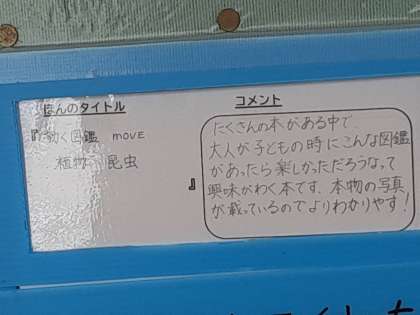 ほんのタイトル
『動く図鑑 move
植物 昆虫
』
コメント
たくさんの本がある中で、
大人が子どもの時にこんな図鑑
があったら楽しかっただろうなって
興味がわく本です。本物の写真
が載っているのでよりわかりやす!